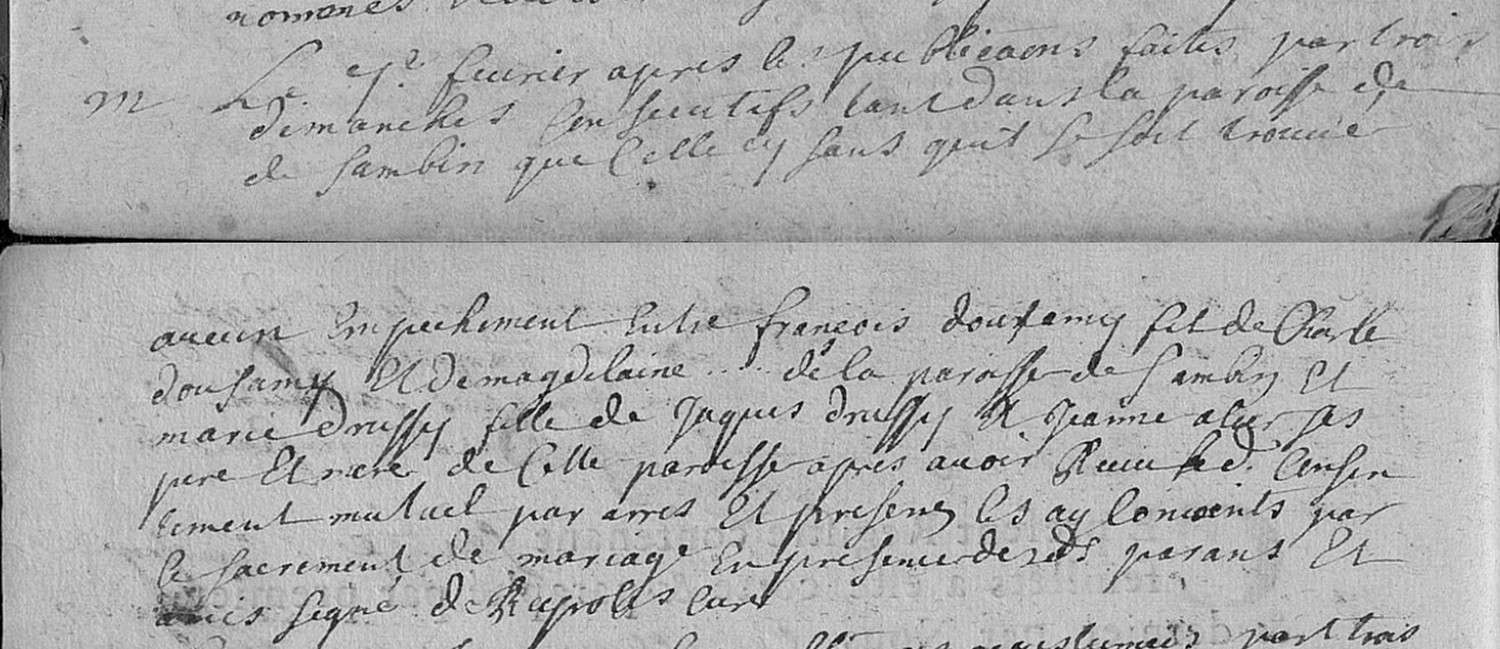 m Le 7.e feuvrier apres les publicaons faites par trois
dimanches consecutifs tant dans la paroisse de
de sambin que celle cy sans quil se soit trouvé
aucun empechement entre françois doussamy fil de Charle
doussamy et de magdelaine .... de la paroisse de sambin et
marie drussy fille de Jaques drussy et Jeanne ses
pere et mere de cette paroisse apres avoir Receu led. consen
tement mutuel par arres et presens les ay conioints par
le sacrement de mariage en presence desds parans et
amis signé cure
par trois